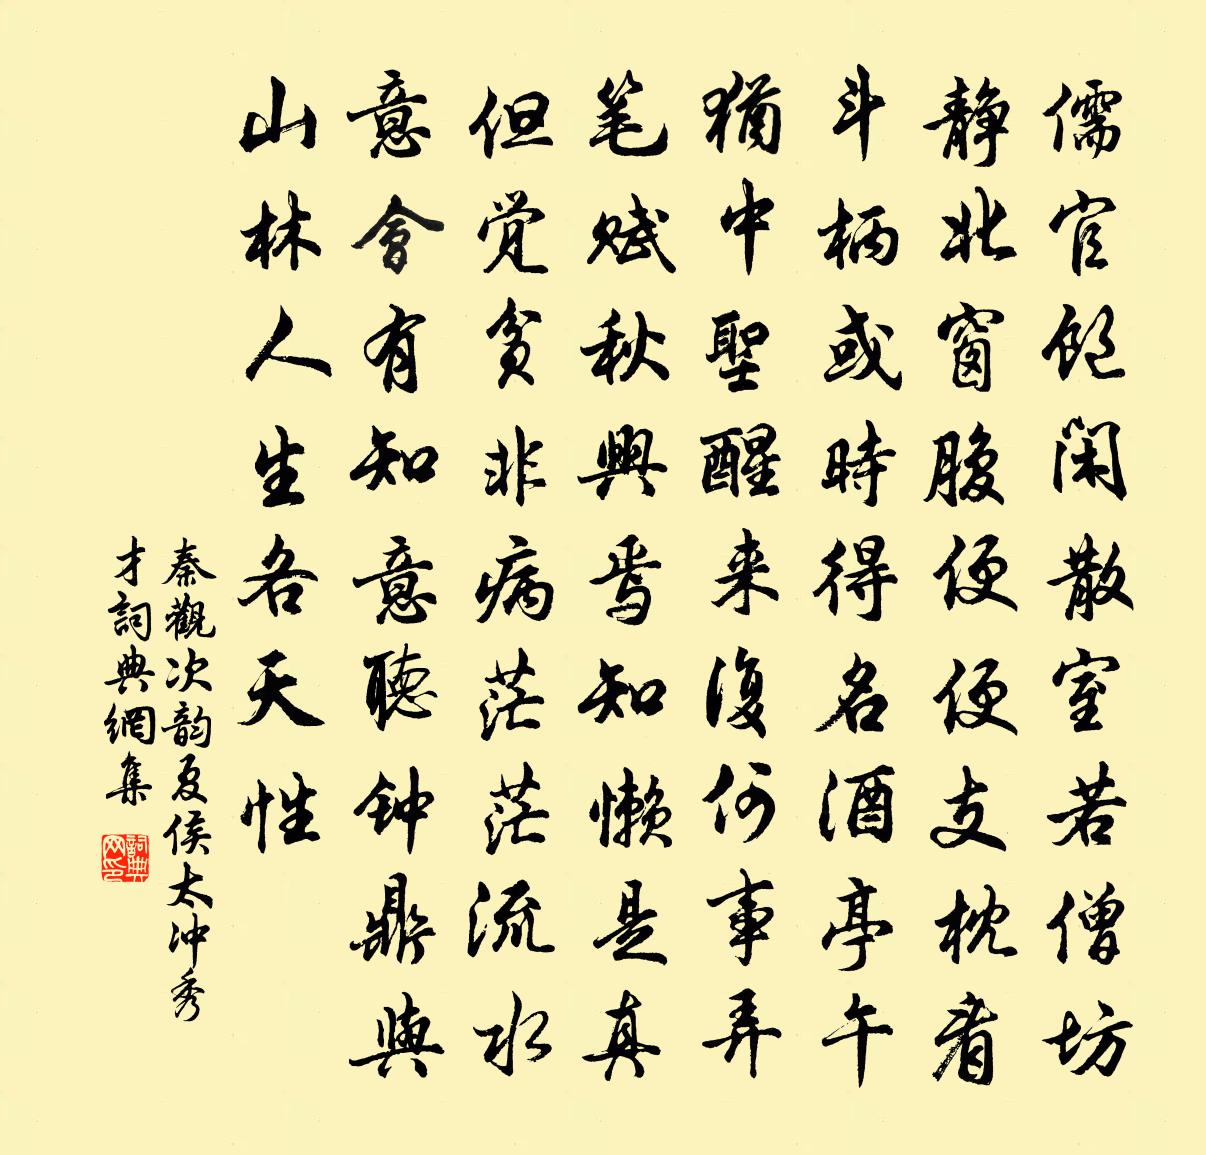 儒官飽閑散室若僧坊
静北窗腹便便支枕看
斗柄或時得名酒亭午
猶中聖醒来復何事弄
笔賦秋興焉知懶是真
但觉貧非病茫茫流水
意會有知意聽钟鼎與
山林人生各天性
秦觀次韵夏侯太冲秀
才詞典網集
詞典
网印